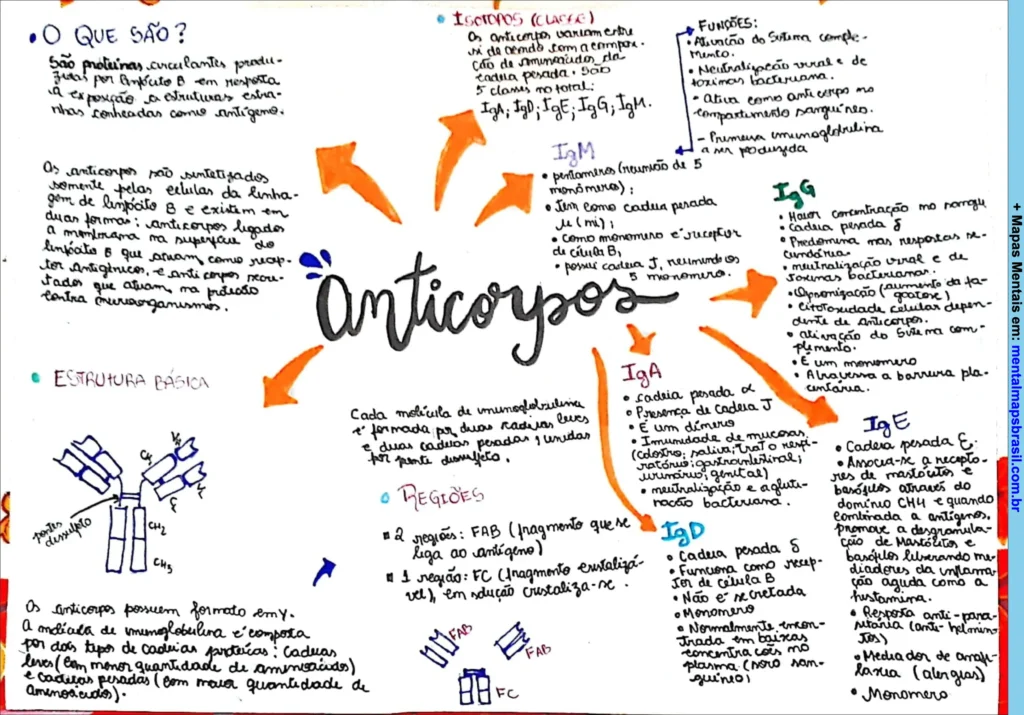 • O QUE SÃO?
São proteínas circulantes produ-
zidas por linfócito B em resposta
a exposição a estruturas estra-
nhas conhecidas como antígeno.
Os anticorpos são sintetizados
somente pelas celulas da linha-
gem de linfócito B e existem em
duas formas: anticorpos ligados
a membrana na superfície do
linfócito B que atuam como recep-
tor antigênicos, e anticorpos secre-
tados que atuam na proteção
contra microorganismos.
• ISOTOPOS (CLASSE)
Os anticorpos variam entre
si de acordo com a compo-
ção de aminoácidos da
cadeia pesada. São
5 classes no total:
IgA; IgD; IgE; IgG; IgM.
FUNÇÕES:
• Ativação do Sistema comple-
mento.
• Neutralização viral e de
toxinas bacteriana.
• Ativa como anticorpo no
compartimento sanguíneo.
- Primeira imunoglobulina
a ser produzida
IgM
• pentamero (reunião de 5
monômeros);
• Tem como cadeia pesada
μ (mi);
• Como monomero é receptor
de célula B,
• possui cadeia J, reunindo os
5 monomero.
IgG
• Maior concentração no sangue
• Cadeia pesada γ
• Predomina nas respostas se-
cundária.
• neutralização viral e de
toxinas bacterianas.
• Opsonização (aumento da fa-
gocitose)
• Citotoxidade celular depen-
dente de anticorpos.
• ativação do Sistema com-
plemento.
• É um monomero
• Atravessa a barreira pla-
centária.
Anticorpos
• ESTRUTURA BÁSICA
pontes
dessulfeto
CH2
CH3
Os anticorpos possuem formato em Y.
A molécula de imunoglobulina é composta
por dois tipos de cadeias protéicas: Cadeias
leves (com menor quantidade de aminoácidos)
e cadeias pesadas (com maior quantidade de
aminoácidos).
Cada molécula de imunoglobulina
é formada por duas cadeias leves
e duas cadeias pesadas, unidas
por ponte dissulfeto.
• REGIÕES
2 regiões: FAB (fragmento que se
liga ao antígeno)
1 região: FC (fragmento cristalizá-
vel), em solução cristaliza-se.
FAB
FAB
FC
IgA
• cadeia pesada α
• Presença de Cadeia J
• É um dímero
• Imunidade de mucosas
(colostro; saliva; trato respi-
ratório; gastrointestinal;
urinário; genital)
• neutralização e agluti-
nação bacteriana.
IgD
• Cadeia pesada δ
• Funciona como recep-
tor de célula B
• Não é secretada
• Monomero
• Normalmente encon-
trada em baixas
concentracões no
plasma (soro san-
guíneo)
IgE
• Cadeia pesada Ɛ.
• Associa-se a recepto-
res de mastócitos e
basófilos através do
domínio CH4 e quando
combinada a antígenos,
promove a desgranula-
ção de Mastócitos e
basófilos liberando me-
diadores da inflama-
ção aguda como a
histamina.
• Resposta anti-para-
sitária (anti-helmin-
tos)
• Mediador de anafi-
laxia (alergias)
• Monomero
+ Mapas Mentais em: mentalmapsbrasil.com.br